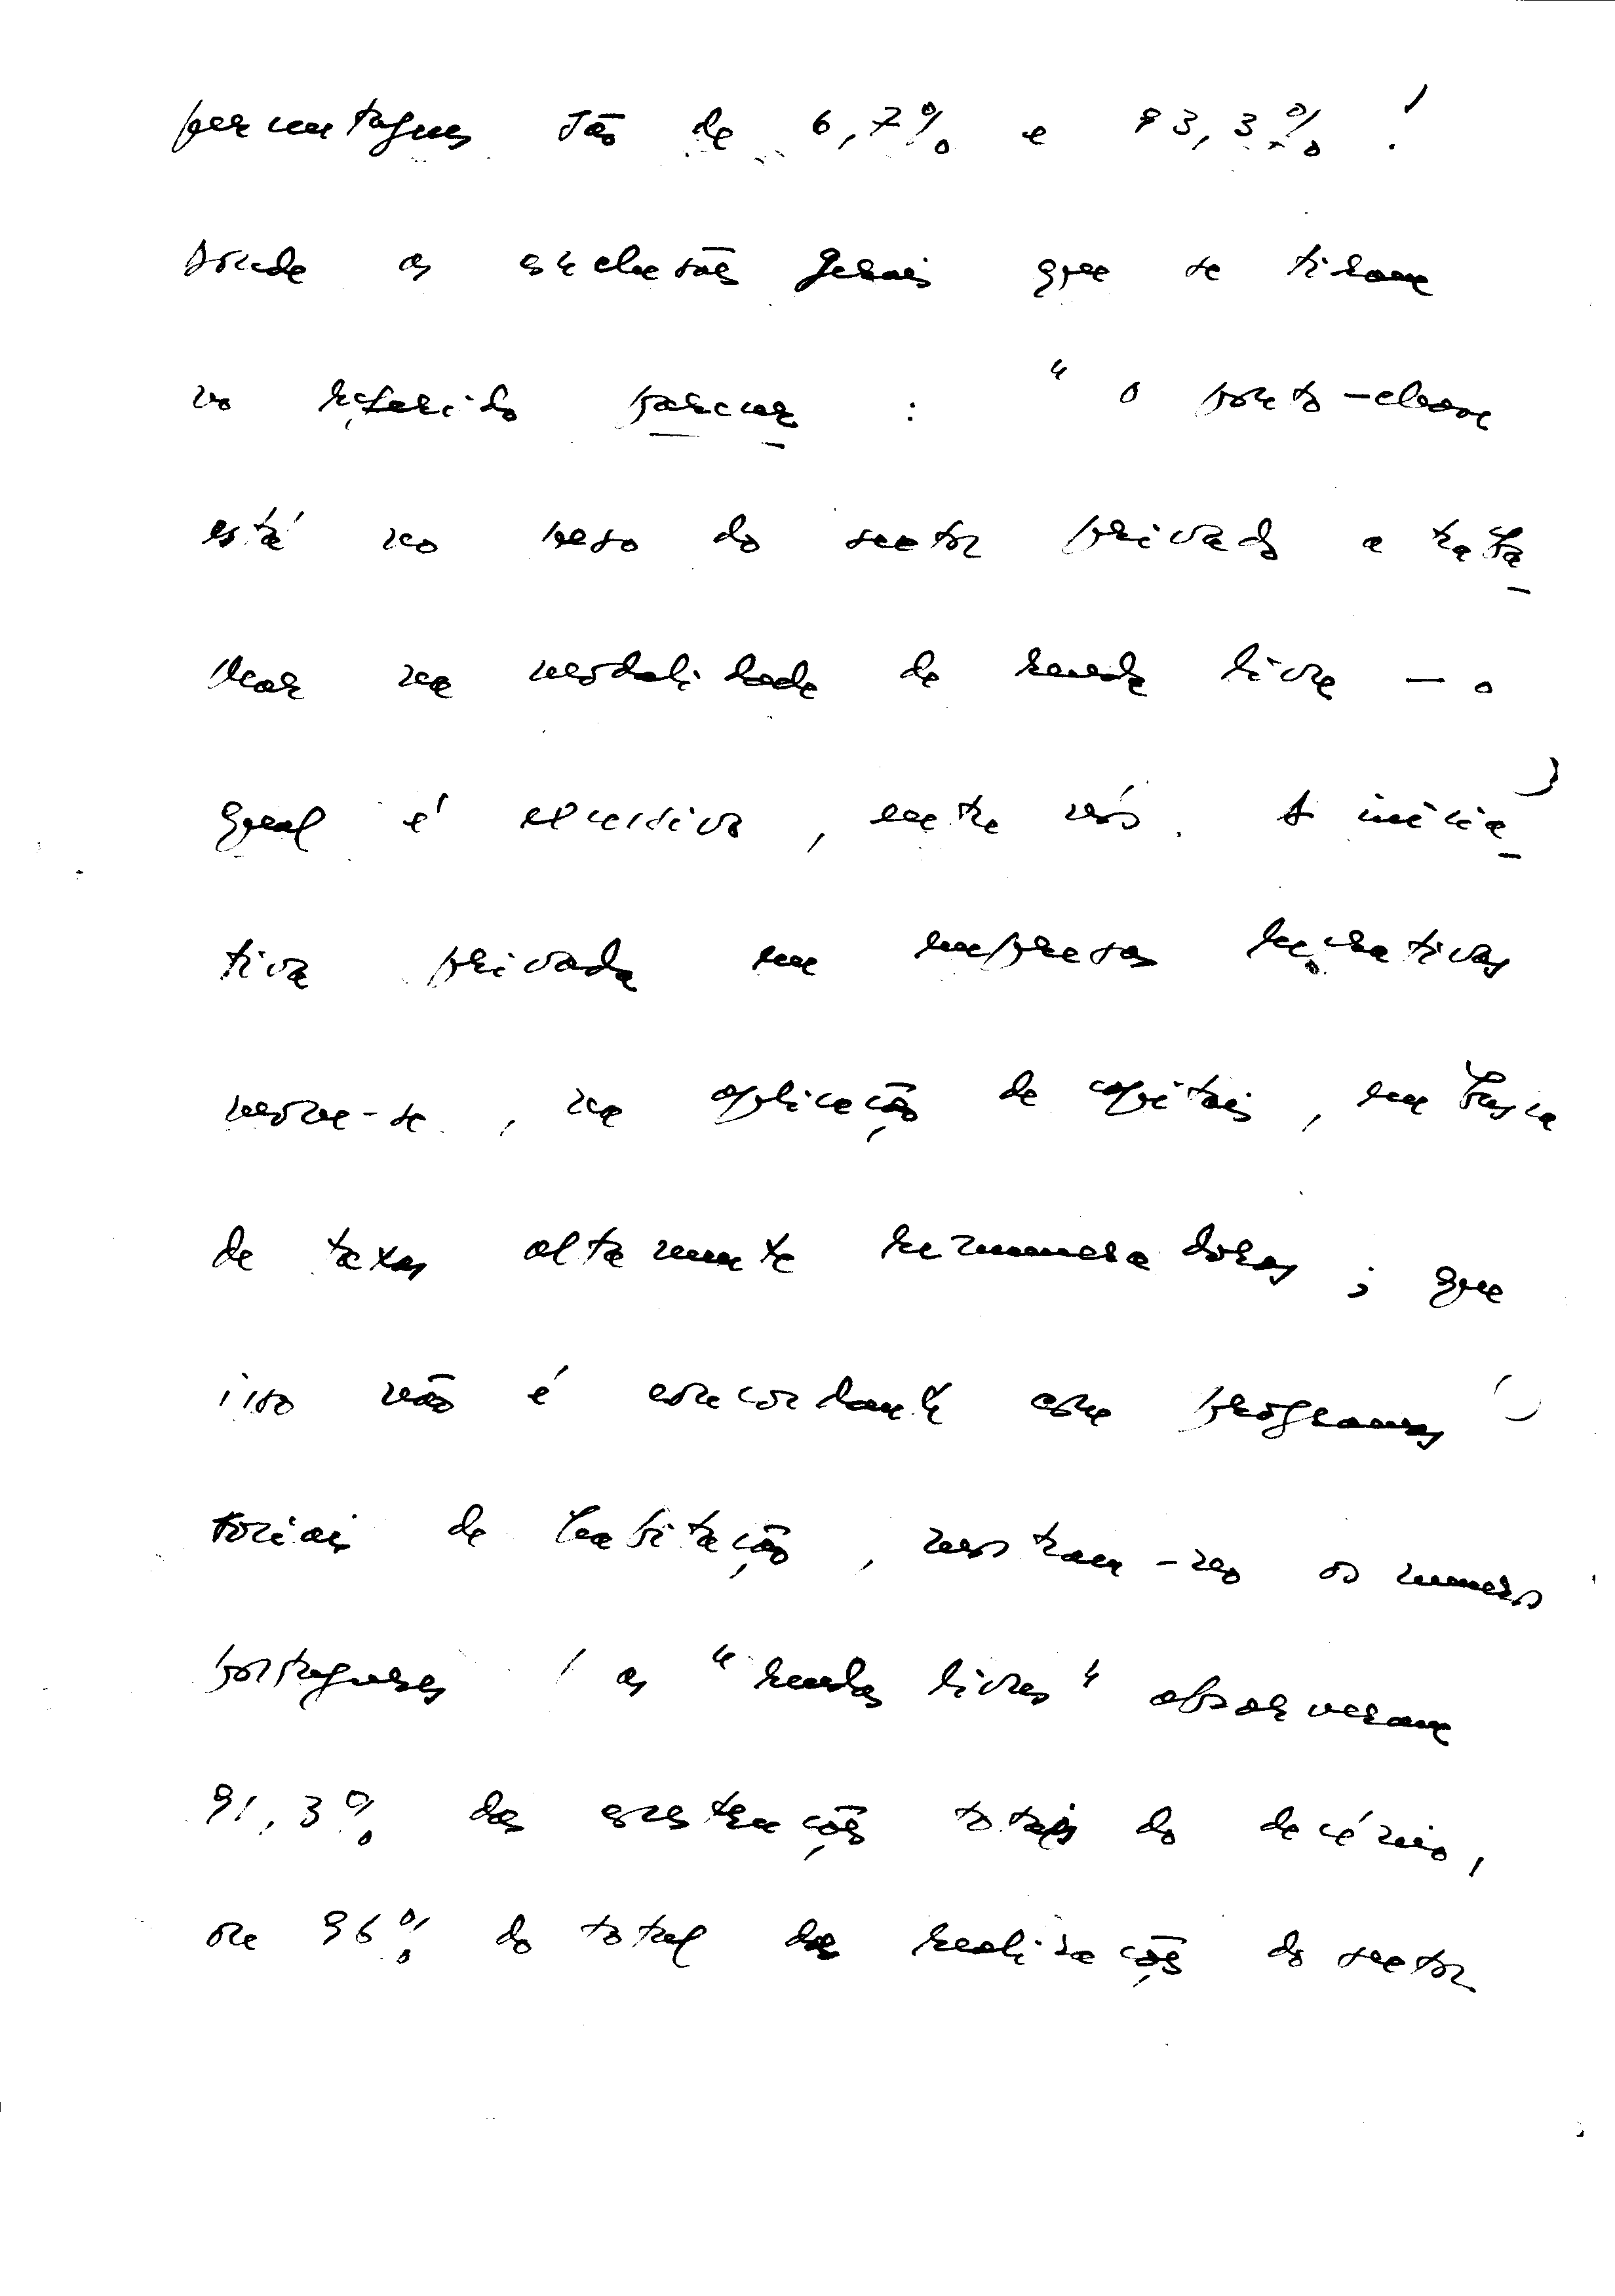 percentagens são de 6,7% e 93,3%!
Donde as conclusões gerais que se tiram
no referido parecer: "o ponto-chave
está no peso do sector privado a traba_
lhar na modalidade de renda livre — o
qual é excessivo, entre nós. A inicia_
tiva privada em empresas lucrativas
move-se, na aplicação de capitais, em busca
de taxas altamente remuneradoras; que
isso não é concordante com programas
sociais de habitação, mostram-no os números
portugueses: as "rendas livres" absorveram
91,3% das construções totais do decénio,
ou 96% do total das realizações do sector